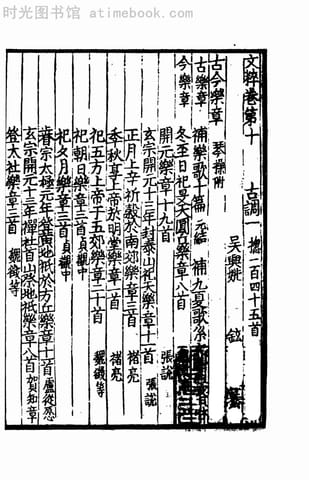 时光图书馆 - atimebook.com
文粹卷第十 古調一 總一百四十五首
吳興姚 鉉 纂
古今樂章 琴操附
古樂章 補樂歌十篇 元結 補九夏歌系
今樂章
冬至日祀昊天圜丘樂章八首
開元樂章十九首
玄宗開元十三年封泰山祀天樂章十一首 張說
正月上辛祈穀於南郊樂章三首 褚亮
季秋享上帝於明堂樂章三首 褚亮
祀五方上帝于五郊樂章二十首 魏徵等
祀朝日樂章三首 貞觀中
祀夕月樂章三首 貞觀中
睿宗太極元年祭黃地祇於方丘樂章十首 盧從愿
玄宗開元十三年禪社首山祭地祇樂章八首 賀知章
祭太社樂章三首 魏徵等